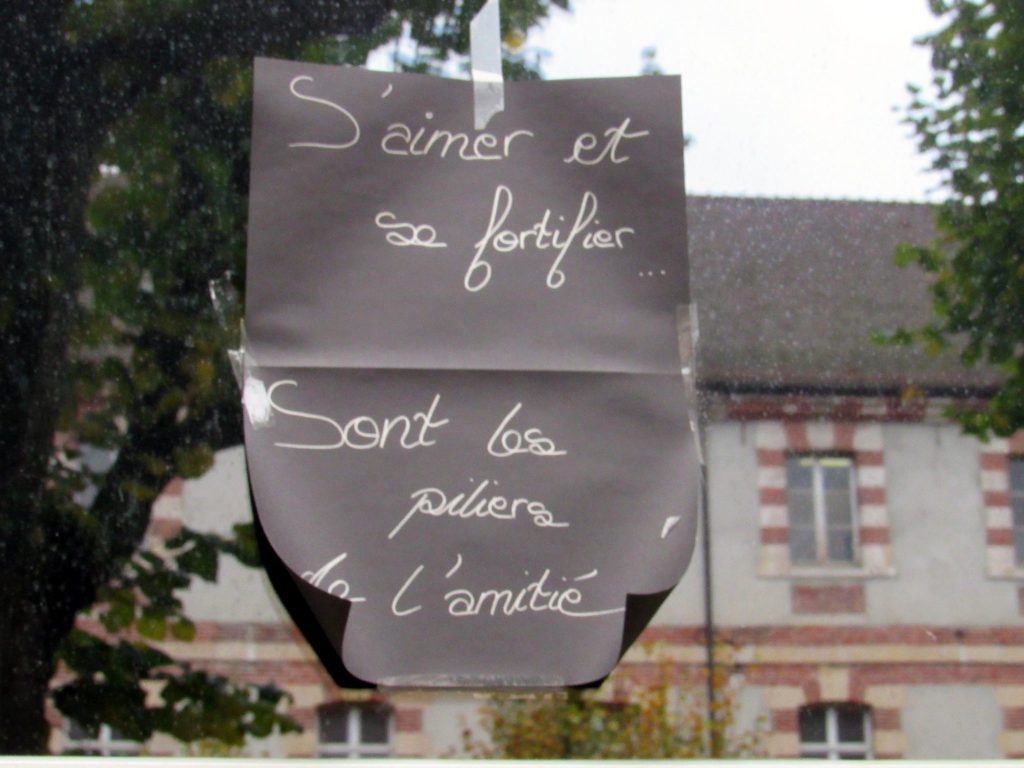 S'aimer et
se fortifier...
Sont les
piliers
de l'amitié